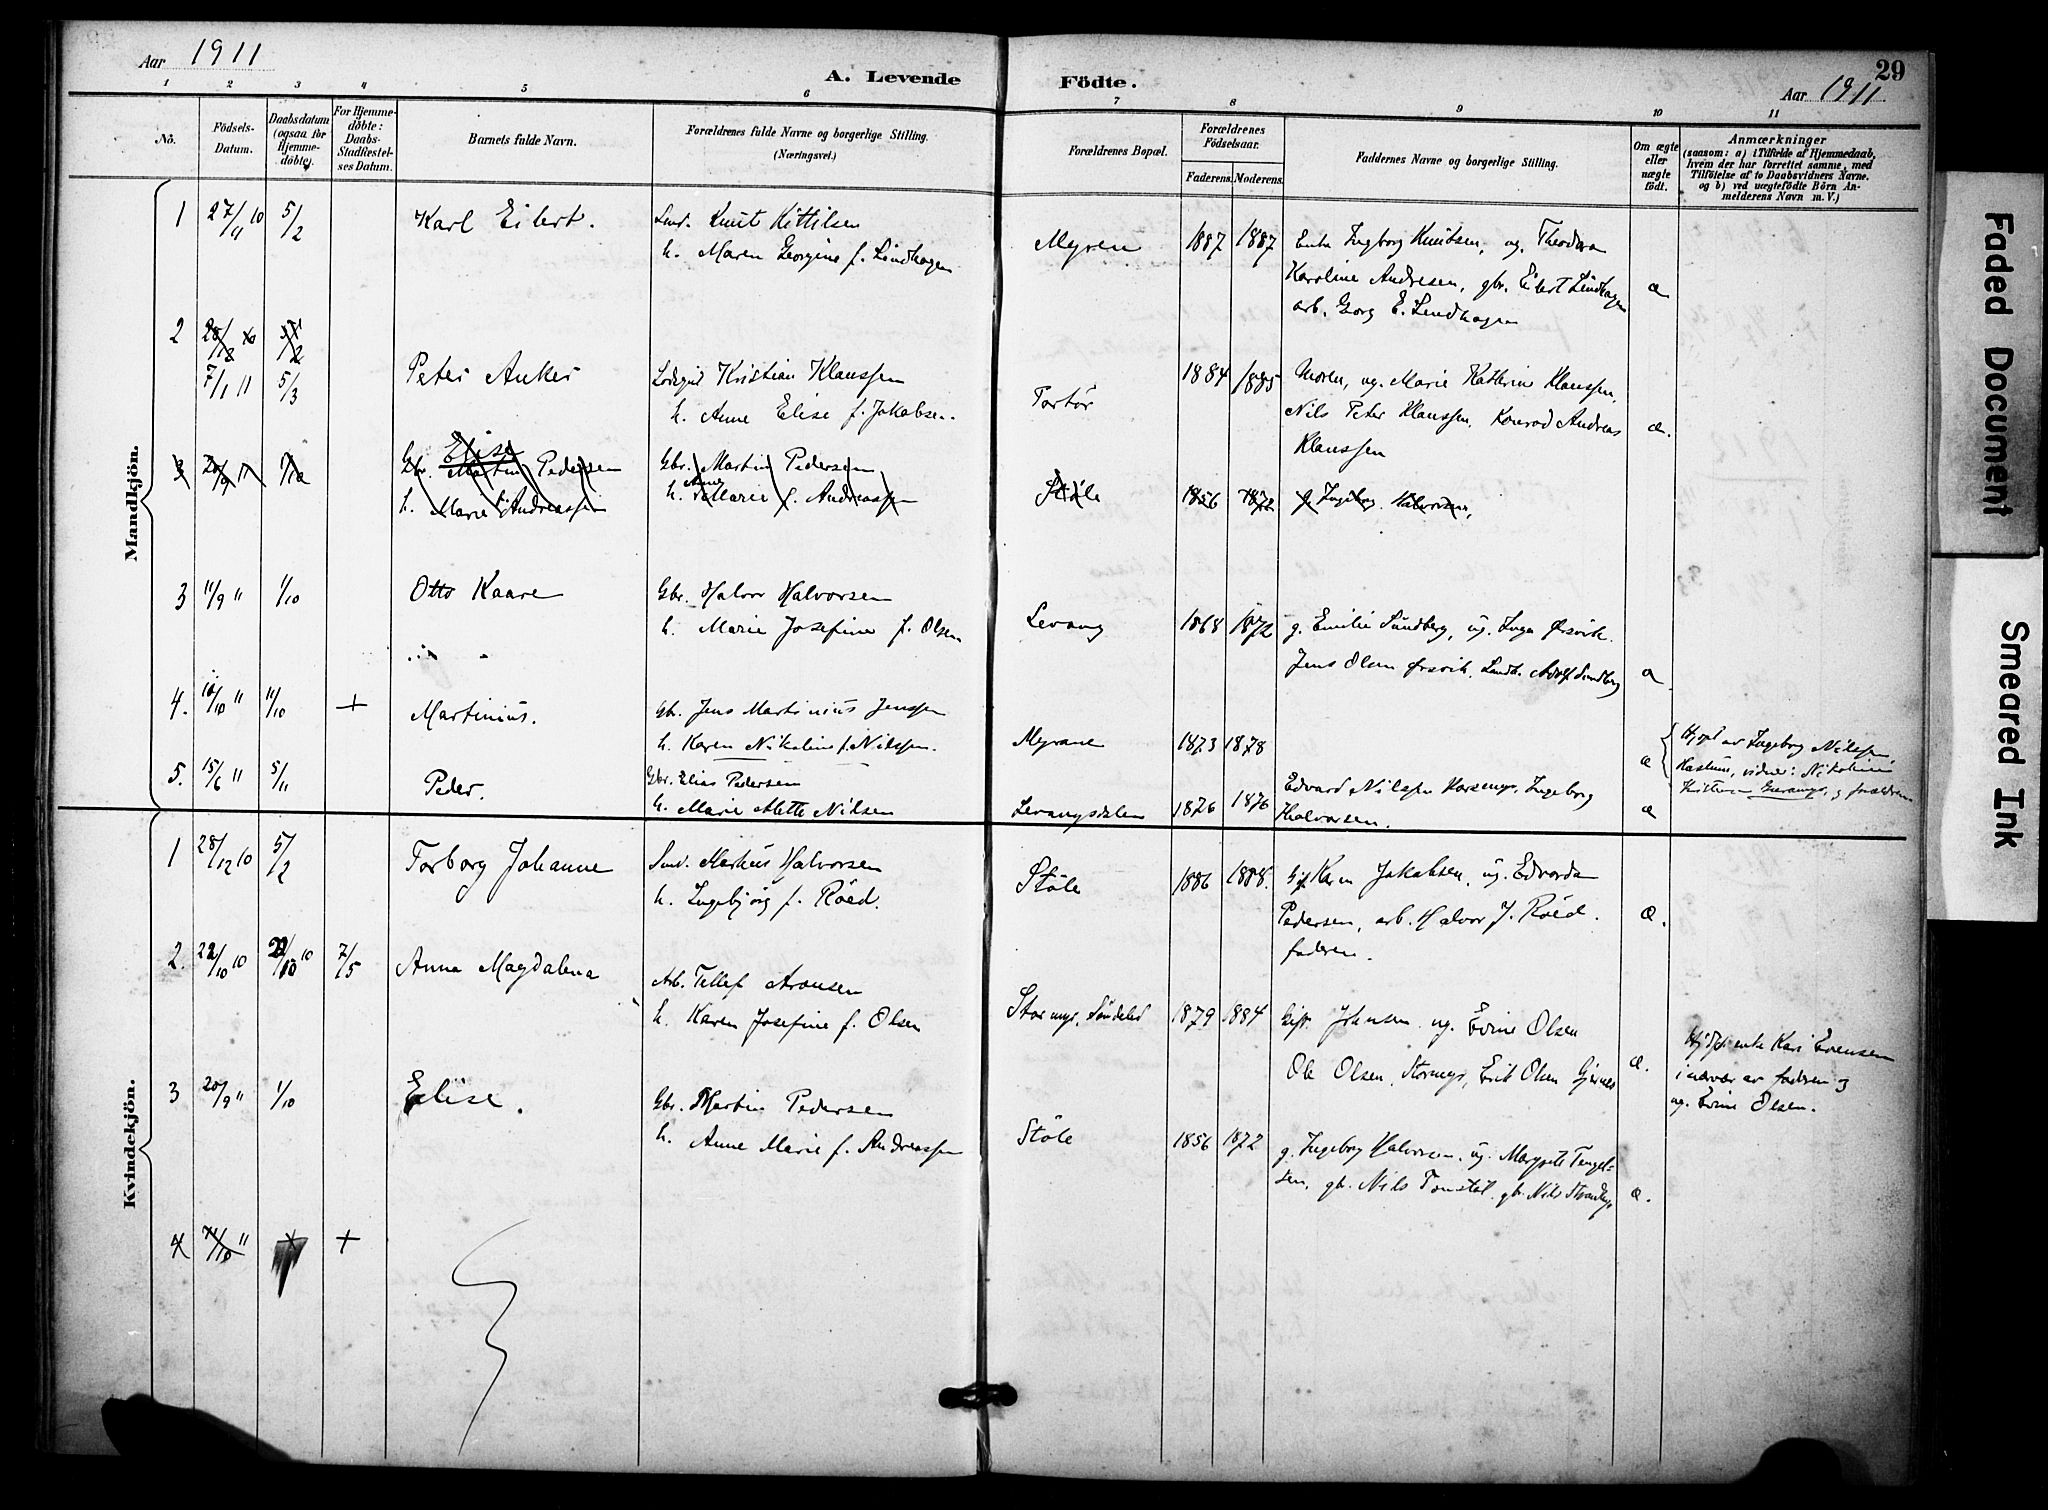 Aar 1911
A. Levende Födte.
29
Aar 1911
1 2 3 4 5 6 7 8 9 10 11
No.
Födsels-Datum.
Daabsdatum (ogsaa for Hjemmedöbte).
For Hjemmedöbte: Daabs-Stadfestelses Datum.
Barnets fulde Navn.
Forældrenes fulde Navne og borgerlige Stilling.
(Næringsvei.)
Forældrenes Bopæl.
Forældrenes Födselsaar.
Faderens. Moderens.
Faddernes Navne og borgerlige Stilling.
Om ægte eller uægte födt.
Anmærkninger
(saasom: a) i Tilfælde af Hjemmedaab,
hvem der har forrettet samme, med
Tilföielse af to Daabsvidners Navne.
og b) ved uægtefödte Börn An-
melderens Navn m. V.)
Mandkjön.
1 27/11 10 5/2 Karl Eilert. Knut Kittilsen
h. Maren Georgine f. Lindhagen
Myren 1887 1887 Enke Ingborg Knutsen, ug. Theodora
Karoline Andresen, gbr. Eilert Lindhagen
arb. Georg E. Lindhagen
æ
2 28/12 10 5/2
7/1 11 5/3 Peter Anker Kristian Klaussen
h. Anne Elise f. Jakobsen.
Portør 1884 1885 Moren, ug. Marie Kathrine Klaussen,
Nils Peter Klaussen, Konrad Andreas
Klaussen
æ.
3 20/9 11 1/10 Elise
Gbr. Martin Pedersen
h. Marie Andreassen
Gbr. Martin Pedersen
h. Anne Marie f. Andreassen
Støle 1856 1872 g. Ingeborg Halvorsen,
3 11/9 " 1/10 Otto Kaare Gbr. Halvor Halvorsen
h. Marie Josefine f. Olsen
Levang 1868 1872 g. Emilie Sundberg, ug. Inga Ørsvik.
Jens Olsen Ørsvik, Adolf Sundberg
æ.
4. 10/10 " 11/10 + Martinius. Gbr. Jens Martinius Jenssen
h. Karen Nikoline f. Nilssen.
Myrane 1873 1878 æ
av Ingeborg Nilssen,
vidner: Nikoline
5. 15/6 " 5/11 Peder. Gbr. Elias Pedersen
h. Marie Alette Nilsen
Levangsdalen 1876 1876 Edvard Nilssen Ingeborg
Halvorsen.
æ
Kvindekjön.
1 28/12 10 5/2 Torborg Johanne Markus Halvorsen
h. Ingebjørg f. Røed.
Støle 1886 1888. Karen Jakobsen, ug. Edvarda
Pedersen, arb. Halvor J. Røed.
faderen.
æ.
2. 22/10 10 7/5 Anna Magdalena
Arb. Tellef Aronsen
h. Karen Josefine f. Olsen
Stormyr, Søndeled 1879 1884 Gift. Johnsen, ug. Evine Olsen
Ole Olsen, Stormyr, Erik Olsen
æ.
enke Kari Evensen
i nærvær av faderen og
ug. Evine Olsen.
3 20/9 " 1/10 Elise. Gbr. Martin Pedersen
h. Anne Marie f. Andreassen
Støle 1856 1872 g. Ingeborg Halvorsen, ug. Margrete Tengel-
sen, gb. Nils Tomstøl, gb. Nils
æ.
4 11/10 " +
Faded Document
Smeared Ink